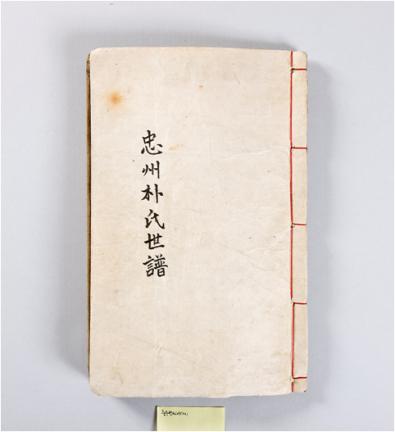 忠州朴氏世譜